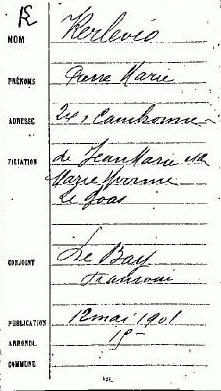 NOM Kerlevio
PRÉNOMS Pierre Marie
ADRESSE
FILIATION de Jean Marie et de
Marie Yvonne
Le Goas
CONJOINT Le Bay
Françoise
PUBLICATION 12 mai 1901
ARRONDt. 15
COMMUNE